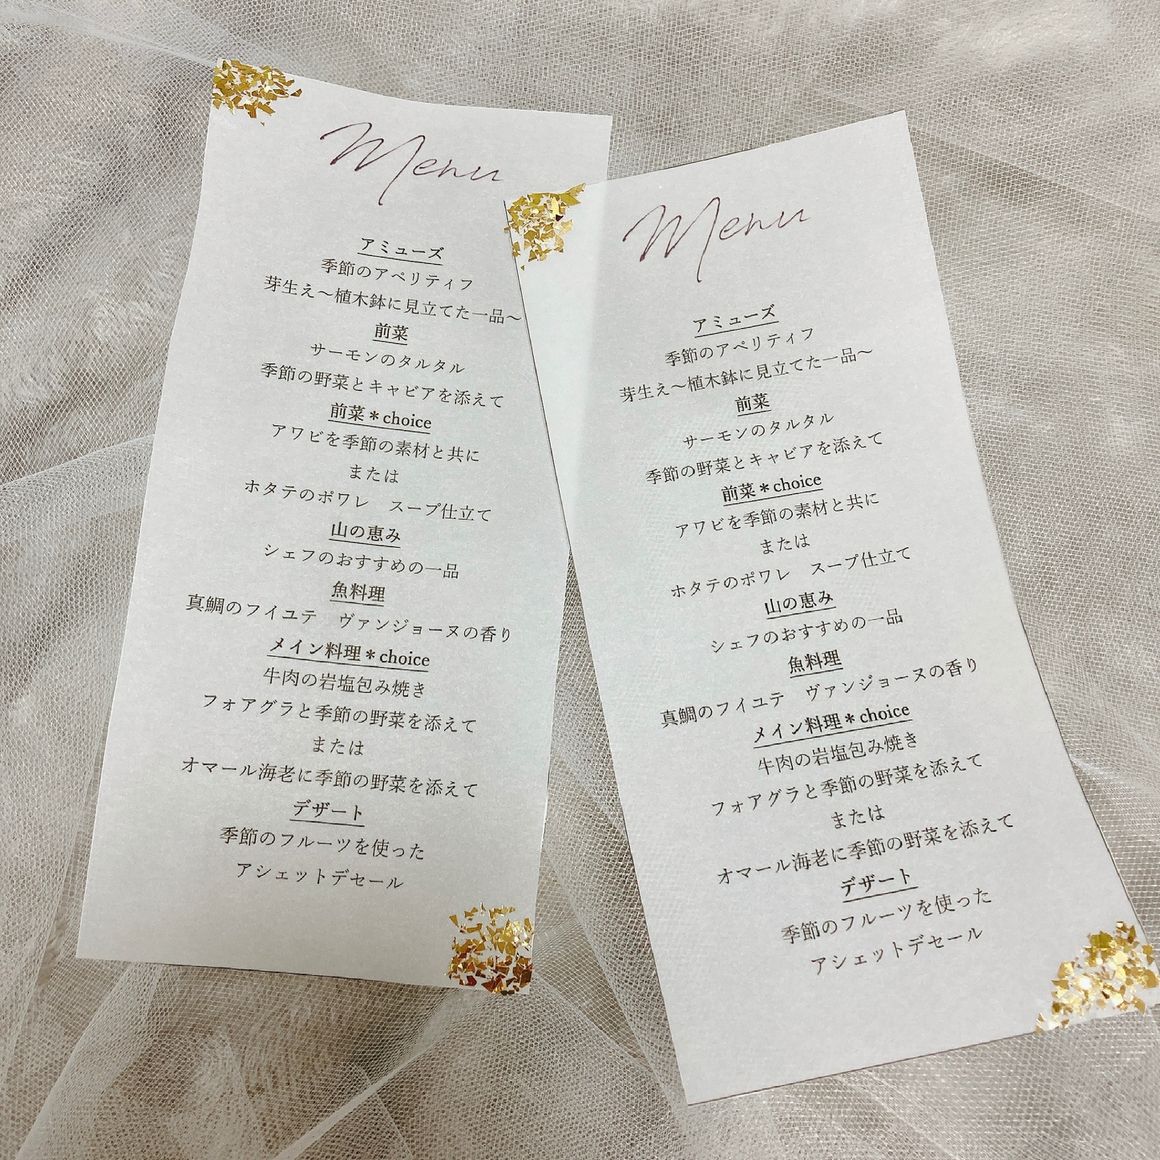 Menu
アミューズ
季節のアペリティフ
芽生え〜植木鉢に見立てた一品〜
前菜
サーモンのタルタル
季節の野菜とキャビアを添えて
前菜＊choice
アワビを季節の素材と共に
または
ホタテのポワレ　スープ仕立て
山の恵み
シェフのおすすめの一品
魚料理
真鯛のフイユテ　ヴァンジョーヌの香り
メイン料理＊choice
牛肉の岩塩包み焼き
フォアグラと季節の野菜を添えて
または
オマール海老に季節の野菜を添えて
デザート
季節のフルーツを使った
アシェットデセール
Menu
アミューズ
季節のアペリティフ
芽生え〜植木鉢に見立てた一品〜
前菜
サーモンのタルタル
季節の野菜とキャビアを添えて
前菜＊choice
アワビを季節の素材と共に
または
ホタテのポワレ　スープ仕立て
山の恵み
シェフのおすすめの一品
魚料理
真鯛のフイユテ　ヴァンジョーヌの香り
メイン料理＊choice
牛肉の岩塩包み焼き
フォアグラと季節の野菜を添えて
または
オマール海老に季節の野菜を添えて
デザート
季節のフルーツを使った
アシェットデセール